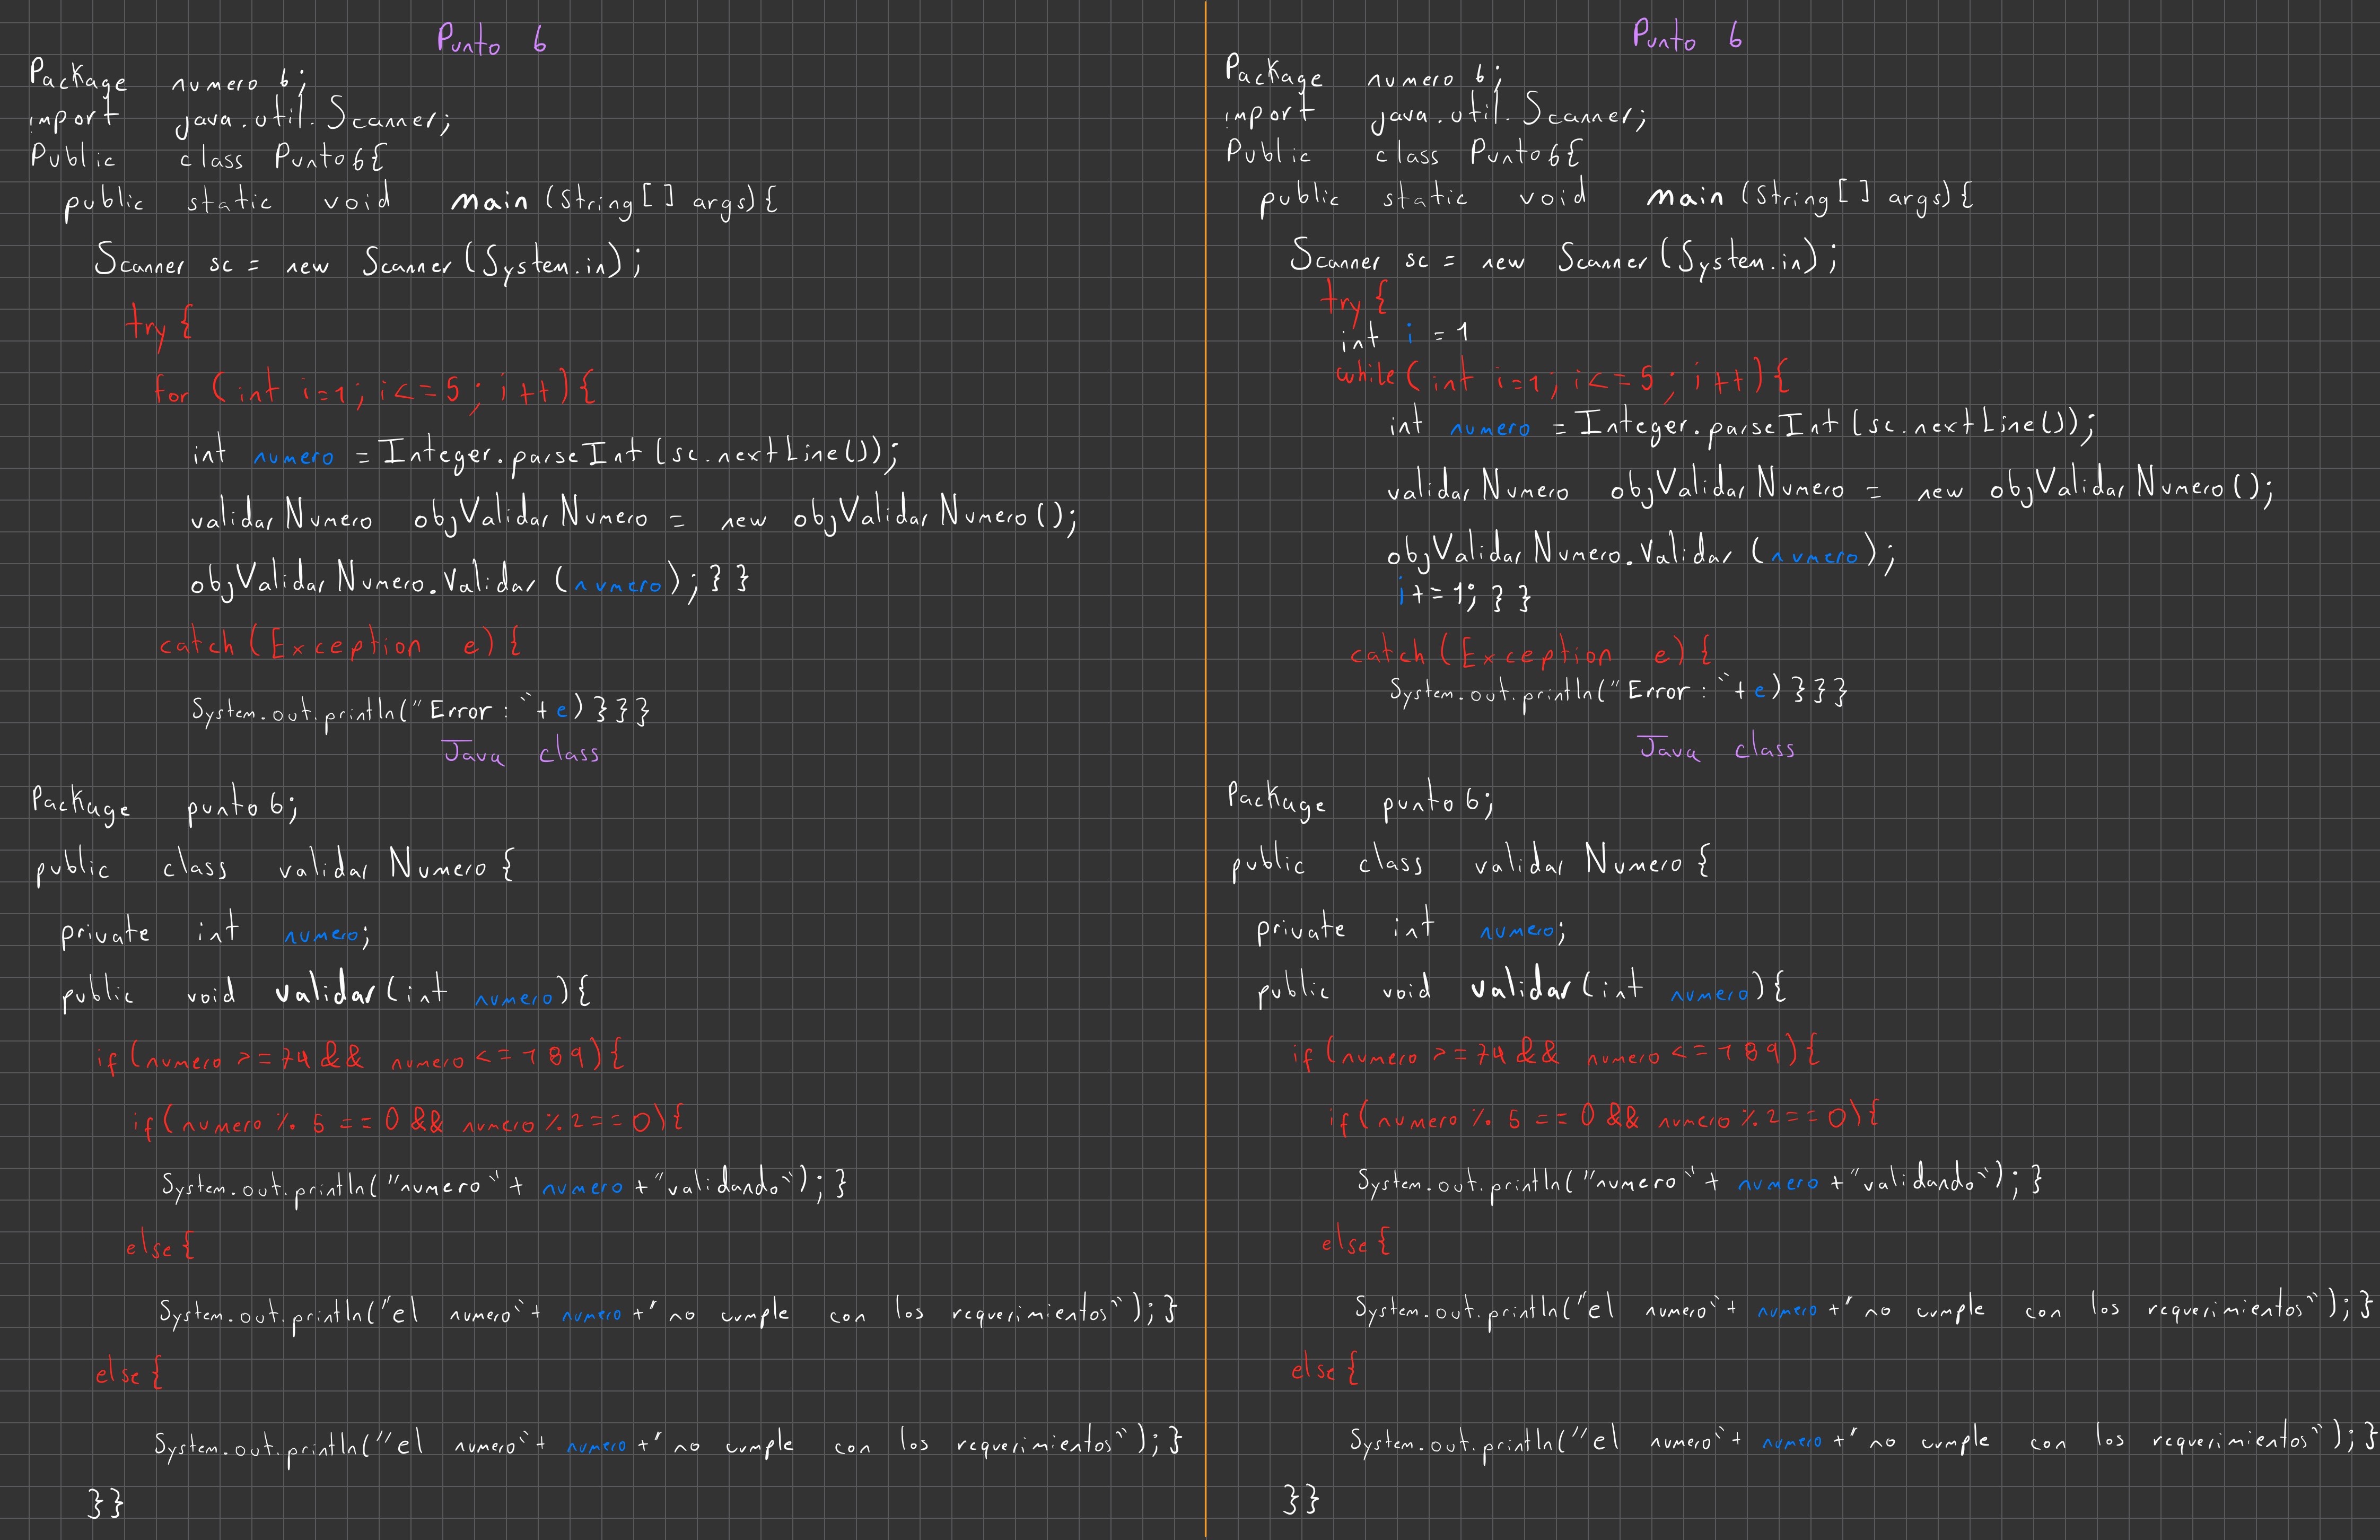 Punto 6
Package numero 6;
import java.util.Scanner;
Public class Punto6{
public static void main (String[] args){
Scanner sc = new Scanner(System.in);
try {
for (int i=1; i<=5; i++){
int numero = Integer.parseInt(sc.nextLine());
validarNumero objValidarNumero = new objValidarNumero();
objValidarNumero.Validar (numero); } }
catch (Exception e) {
System.out.println("Error: "+ e) } } }
Java class
Package punto6;
public class validarNumero {
private int numero;
public void validar(int numero){
if (numero >=74 && numero <=189){
if (numero % 5 == 0 && numero %2==0){
System.out.println("numero"+ numero +"validando"); }
else {
System.out.println("el numero"+ numero +" no cumple con los requerimientos"); }
else {
System.out.println("el numero"+ numero +" no cumple con los requerimientos"); }
} }
Punto 6
Package numero 6;
import java.util.Scanner;
Public class Punto6{
public static void main (String[] args){
Scanner sc = new Scanner(System.in);
try {
int i = 1
while (int i=1; i<=5; i++){
int numero = Integer.parseInt(sc.nextLine());
validarNumero objValidarNumero = new objValidarNumero();
objValidarNumero.Validar (numero);
i+=1; } }
catch (Exception e) {
System.out.println("Error: "+ e) } } }
Java class
Package punto6;
public class validarNumero {
private int numero;
public void validar(int numero){
if (numero >=74 && numero <=189){
if (numero % 5 == 0 && numero %2==0){
System.out.println("numero"+ numero +"validando"); }
else {
System.out.println("el numero"+ numero +" no cumple con los requerimientos"); }
else {
System.out.println("el numero"+ numero +" no cumple con los requerimientos"); }
} }